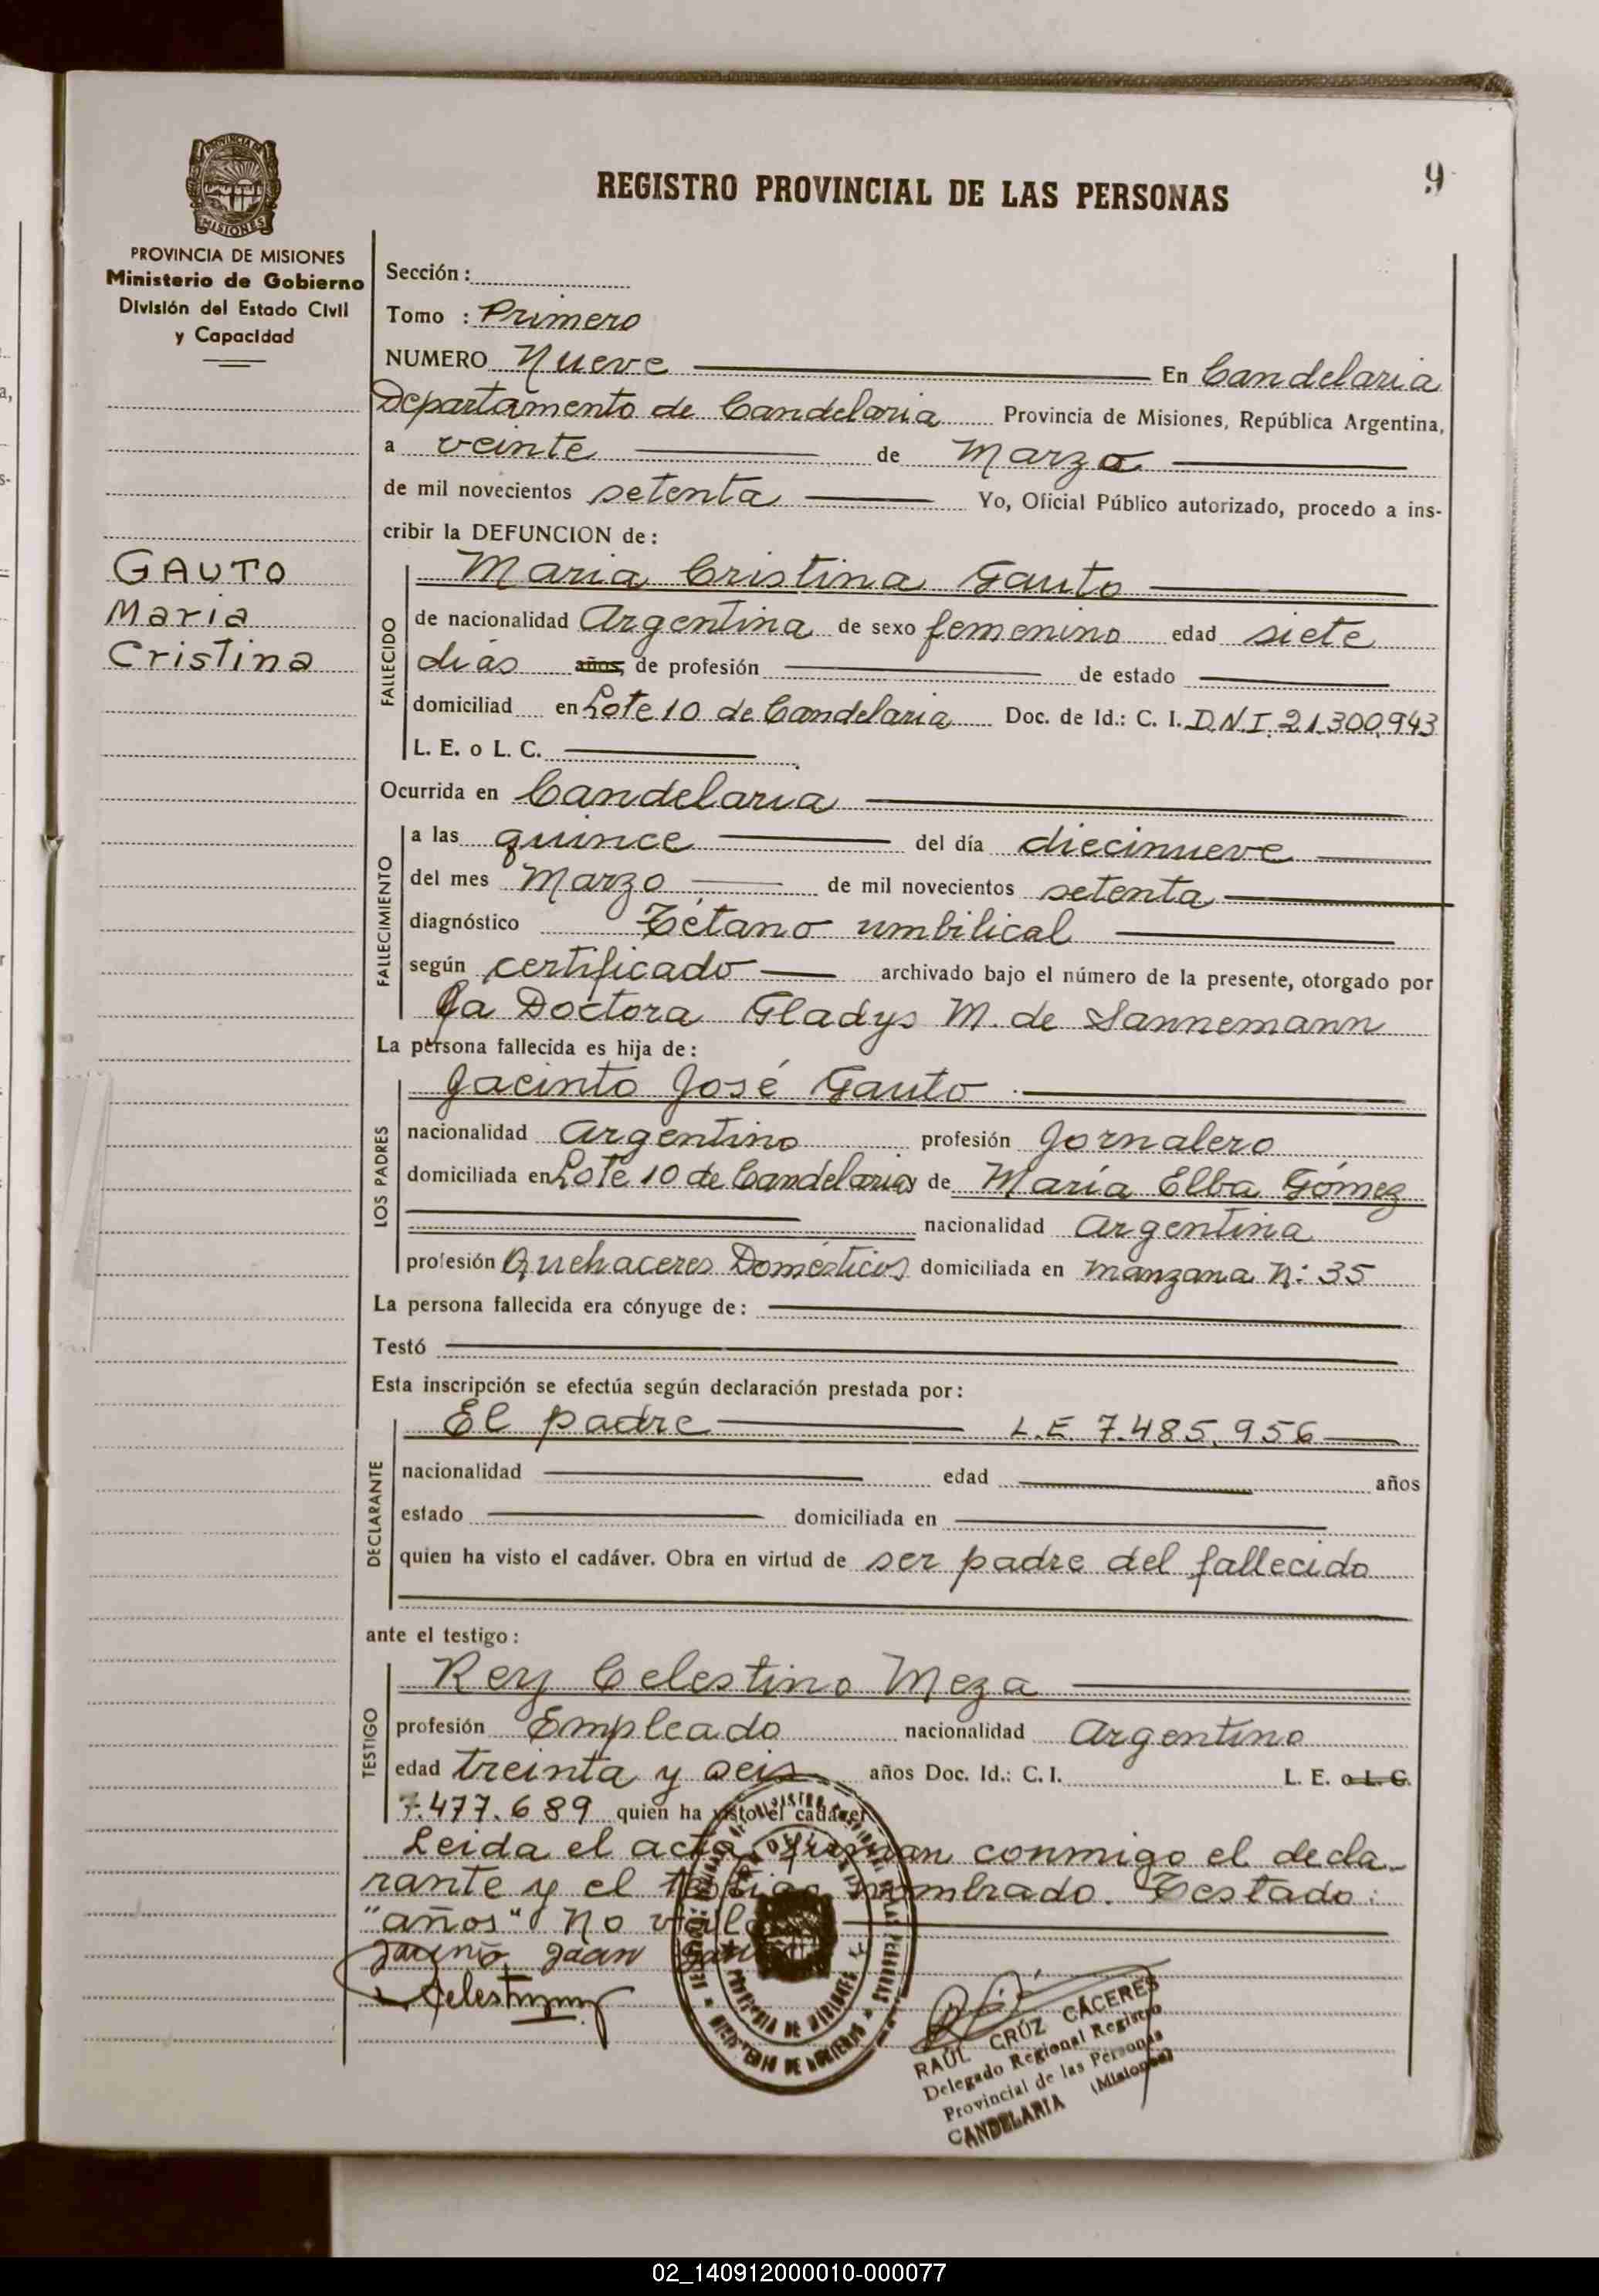 PROVINCIA DE MISIONES
PROVINCIA DE MISIONES
Ministerio de Gobierno
División del Estado Civil
y Capacidad
GAUTO
Maria
Cristina
REGISTRO PROVINCIAL DE LAS PERSONAS
9
Sección:
Tomo : Primero
NUMERO Nueve En Candelaria
Departamento de Candelaria Provincia de Misiones, República Argentina,
a veinte de Marzo
de mil novecientos setenta Yo, Oficial Público autorizado, procedo a ins-
cribir la DEFUNCION de:
FALLECIDO
Maria Cristina Gauto
de nacionalidad Argentina de sexo femenino edad siete
dias años, de profesión de estado
domiciliad en Lote 10 de Candelaria Doc. de Id.: C. I. D.N.I. 21.300.943
L. E. o L. C.
Ocurrida en Candelaria
FALLECIMIENTO
a las quince del día diecinueve
del mes Marzo de mil novecientos setenta
diagnóstico Tétano umbilical
según certificado archivado bajo el número de la presente, otorgado por
La Doctora Gladys M. de Sannemann
La persona fallecida es hija de:
LOS PADRES
Jacinto José Gauto
nacionalidad Argentino profesión Jornalero
domiciliada en Lote 10 de Candelaria y de María Elba Gómez
nacionalidad Argentina
profesión Quehaceres Domésticos domiciliada en Manzana N: 35
La persona fallecida era cónyuge de:
Testó
Esta inscripción se efectúa según declaración prestada por:
DECLARANTE
El padre L.E. 7.485.956
nacionalidad edad años
estado domiciliada en
quien ha visto el cadáver. Obra en virtud de ser padre del fallecido
ante el testigo:
TESTIGO
Rey Celestino Meza
profesión Empleado nacionalidad Argentino
edad treinta y seis años Doc. Id.: C. I. L. E. o L. C.
7.477.689 quien ha visto el cadáver
Leida el acta, firman conmigo el decla-
rante y el testigo nombrado. Testado:
"años" No vale
RAÚL CRÚZ CÁCERES
Delegado Regional Registro
Provincial de las Personas
CANDELARIA (Misiones)
MINISTERIO DE GOBIERNO
02_140912000010-000077